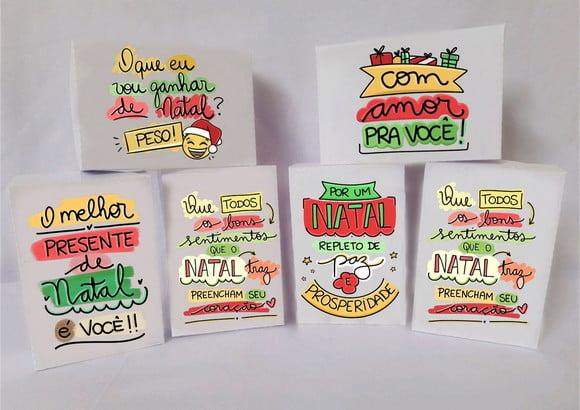 O que eu
vou ganhar
de Natal?
PESO!
com
amor
PRA VOCÊ!
O melhor
PRESENTE
de
Natal
é VOCÊ!!
Que TODOS
os bons
sentimentos
QUE O
NATAL traz
PREENCHAM SEU
coração
POR UM
NATAL
REPLETO DE
paz
E
PROSPERIDADE
Que TODOS
os bons
sentimentos
QUE O
NATAL traz
PREENCHAM SEU
coração